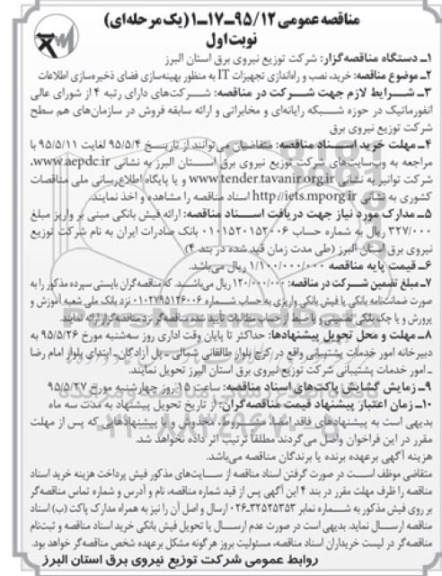 مناقصه عمومی ۹۵/۱۲-۱۷-۱ (یک مرحله‌ای)
نوبت اول
۱ـ دستگاه مناقصه‌گزار: شرکت توزیع نیروی برق استان البرز
۲ـ موضوع مناقصه: خرید، نصب و راه‌اندازی تجهیزات IT به منظور بهینه‌سازی فضای ذخیره‌سازی اطلاعات
۳ـ شرایط لازم جهت شرکت در مناقصه: شرکت‌های دارای رتبه ۴ از شورای عالی
انفورماتیک در حوزه شبکه رایانه‌ای و مخابراتی و ارائه سابقه فروش در سازمان‌های هم سطح
شرکت توزیع نیروی برق
۴ـ مهلت خرید اسناد مناقصه: متقاضیان می‌توانند از تاریخ ۹۵/۵/۴ لغایت ۹۵/۵/۱۱ با
مراجعه به وب‌سایت‌های شرکت توزیع نیروی برق استان البرز به نشانی www.aepdc.ir،
شرکت توانیر به نشانی www.tender.tavanir.org.ir و یا پایگاه اطلاع‌رسانی ملی مناقصات
کشوری به نشانی http://iets.mporg.ir اسناد مناقصه را مشاهده و اخذ نمایند.
۵ـ مدارک مورد نیاز جهت دریافت اسناد مناقصه: ارائه فیش بانکی مبنی بر واریز مبلغ
۳۲۷/۰۰۰ ریال به شماره حساب ۰۱۰۱۵۲۰۱۵۲۰۰۶ بانک صادرات ایران به نام شرکت توزیع
نیروی برق استان البرز (طی مدت زمان قید شده در بند ۴)
۶ـ قیمت پایه مناقصه ۱/۱۰۰/۰۰۰/۰۰۰ ریال می‌باشد.
۷ـ مبلغ تضمین شرکت در مناقصه: ۱۲۰/۰۰۰/۰۰۰ ریال می‌باشد که مناقصه‌گران بایستی سپرده مذکور را به
صورت ضمانت‌نامه بانکی یا فیش بانکی واریزی به حساب شماره ۰۱۰۲۷۹۵۱۲۶۰۰۶ نزد بانک ملی شعبه آموزش و
پرورش و یا چک بانکی تضمینی و یا کسر از حساب مطالبات تأیید شده مناقصه‌گر نزد مناقصه‌گزار ارائه نمایند.
۸ـ مهلت و محل تحویل پیشنهادها: حداکثر تا پایان وقت اداری روز سه‌شنبه مورخ ۹۵/۵/۲۶ به
دبیرخانه امور خدمات پشتیبانی واقع در کرج بلوار طالقانی شمالی ـ پل آزادگان ـ ابتدای بلوار امام رضا
ـ امور خدمات پشتیبانی شرکت توزیع نیروی برق استان البرز تحویل نمایند.
۹ـ زمایش گشایش پاکت‌های اسناد مناقصه: ساعت ۱۵ روز چهارشنبه مورخ ۹۵/۵/۲۷
۱۰ـ زمان اعتبار پیشنهاد قیمت مناقصه‌گران: از تاریخ تحویل پیشنهاد به مدت سه ماه
بدیهی است به پیشنهادهای فاقد امضا، مشروط، مخدوش و پیشنهادهایی که پس از مهلت
مقرر در این فراخوان واصل می‌گردند مطلقاً ترتیب اثر داده نخواهد شد.
هزینه آگهی برعهده برنده یا برندگان مناقصه می‌باشد.
متقاضی موظف است در صورت گرفتن اسناد مناقصه از سایت‌های مذکور فیش پرداخت هزینه خرید اسناد
مناقصه را ظرف مهلت مقرر در بند ۴ این آگهی پس از قید شماره مناقصه، نام و آدرس و شماره تماس مناقصه‌گر
بر روی فیش مذکور به شماره نمابر ۳۲۵۲۵۳۵۳-۰۲۶ ارسال و اصل آن را نیز به همراه مدارک پاکت (ب) اسناد
مناقصه ارسال نماید. بدیهی است در صورت عدم ارسال یا تحویل فیش بانکی خرید اسناد مناقصه و ثبت‌نام
مناقصه‌گر در لیست خریداران اسناد مناقصه، مسئولیت بروز هرگونه مشکل برعهده شخص مناقصه‌گر خواهد بود.
روابط عمومی شرکت توزیع نیروی برق استان البرز